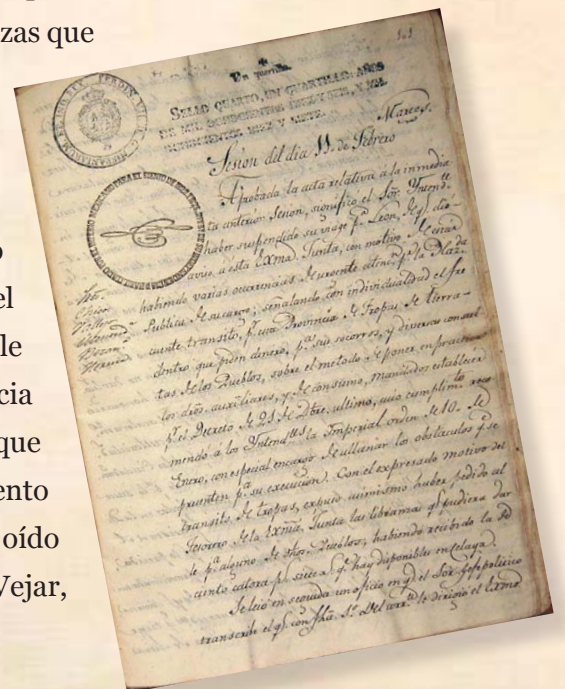 zas que
o
el
le
cia
que
ento
oído
Vejar,
Un quartillo.
SELLO QUARTO, UN QUARTILLO: AÑOS
DE MIL OCHOCIENTOS DIEZ Y SEIS, Y MIL
OCHOCIENTOS DIEZ Y SIETE.
Sesion del dia 11. de Febrero
Aprobada la acta relativa á la inmedia
ta anterior Sesion, significó el Sor. Yntend.te
haber suspendido su viage p.a Leon, de q.e dió
aviso á esta Exma. Junta, con motivo de
habiendo varias ocurrencias de urgente
Publica de su cargo; señalando con individualidad el fre
cuente transito, p.r esta Provincia de Tropas de tierra-
dentro que piden dinero, p.a sus socorros, y diversas consul
tas de los Pueblos, sobre el metodo de poner en practica
los dros. auxiliares, y de consumo, mandados establecer
p.r el Decreto de 21 de Dbre. ultimo, cuio cumplim.to reco
mendó á los Yntend.tes la Imperial orden de 10. de
Enero, con especial encargo de allanar los obstaculos q.e se
presenten p.a su execucion. Con el expresado motivo del
transito de tropas, expuso asimismo haber pedido al
Tesorero de la Exma. Junta las libranzas q.e pudiera dar
le p.a alguno de otros Pueblos, habiendo recibido la de
ciento catorce p.s siete r.s q.e hay disponibles en Celaya.
Se leió en seguida un oficio en q.e el Sor. Gefe politico
transcribe el q.e con fha. 5. del corr.te le dirigió el Exmo